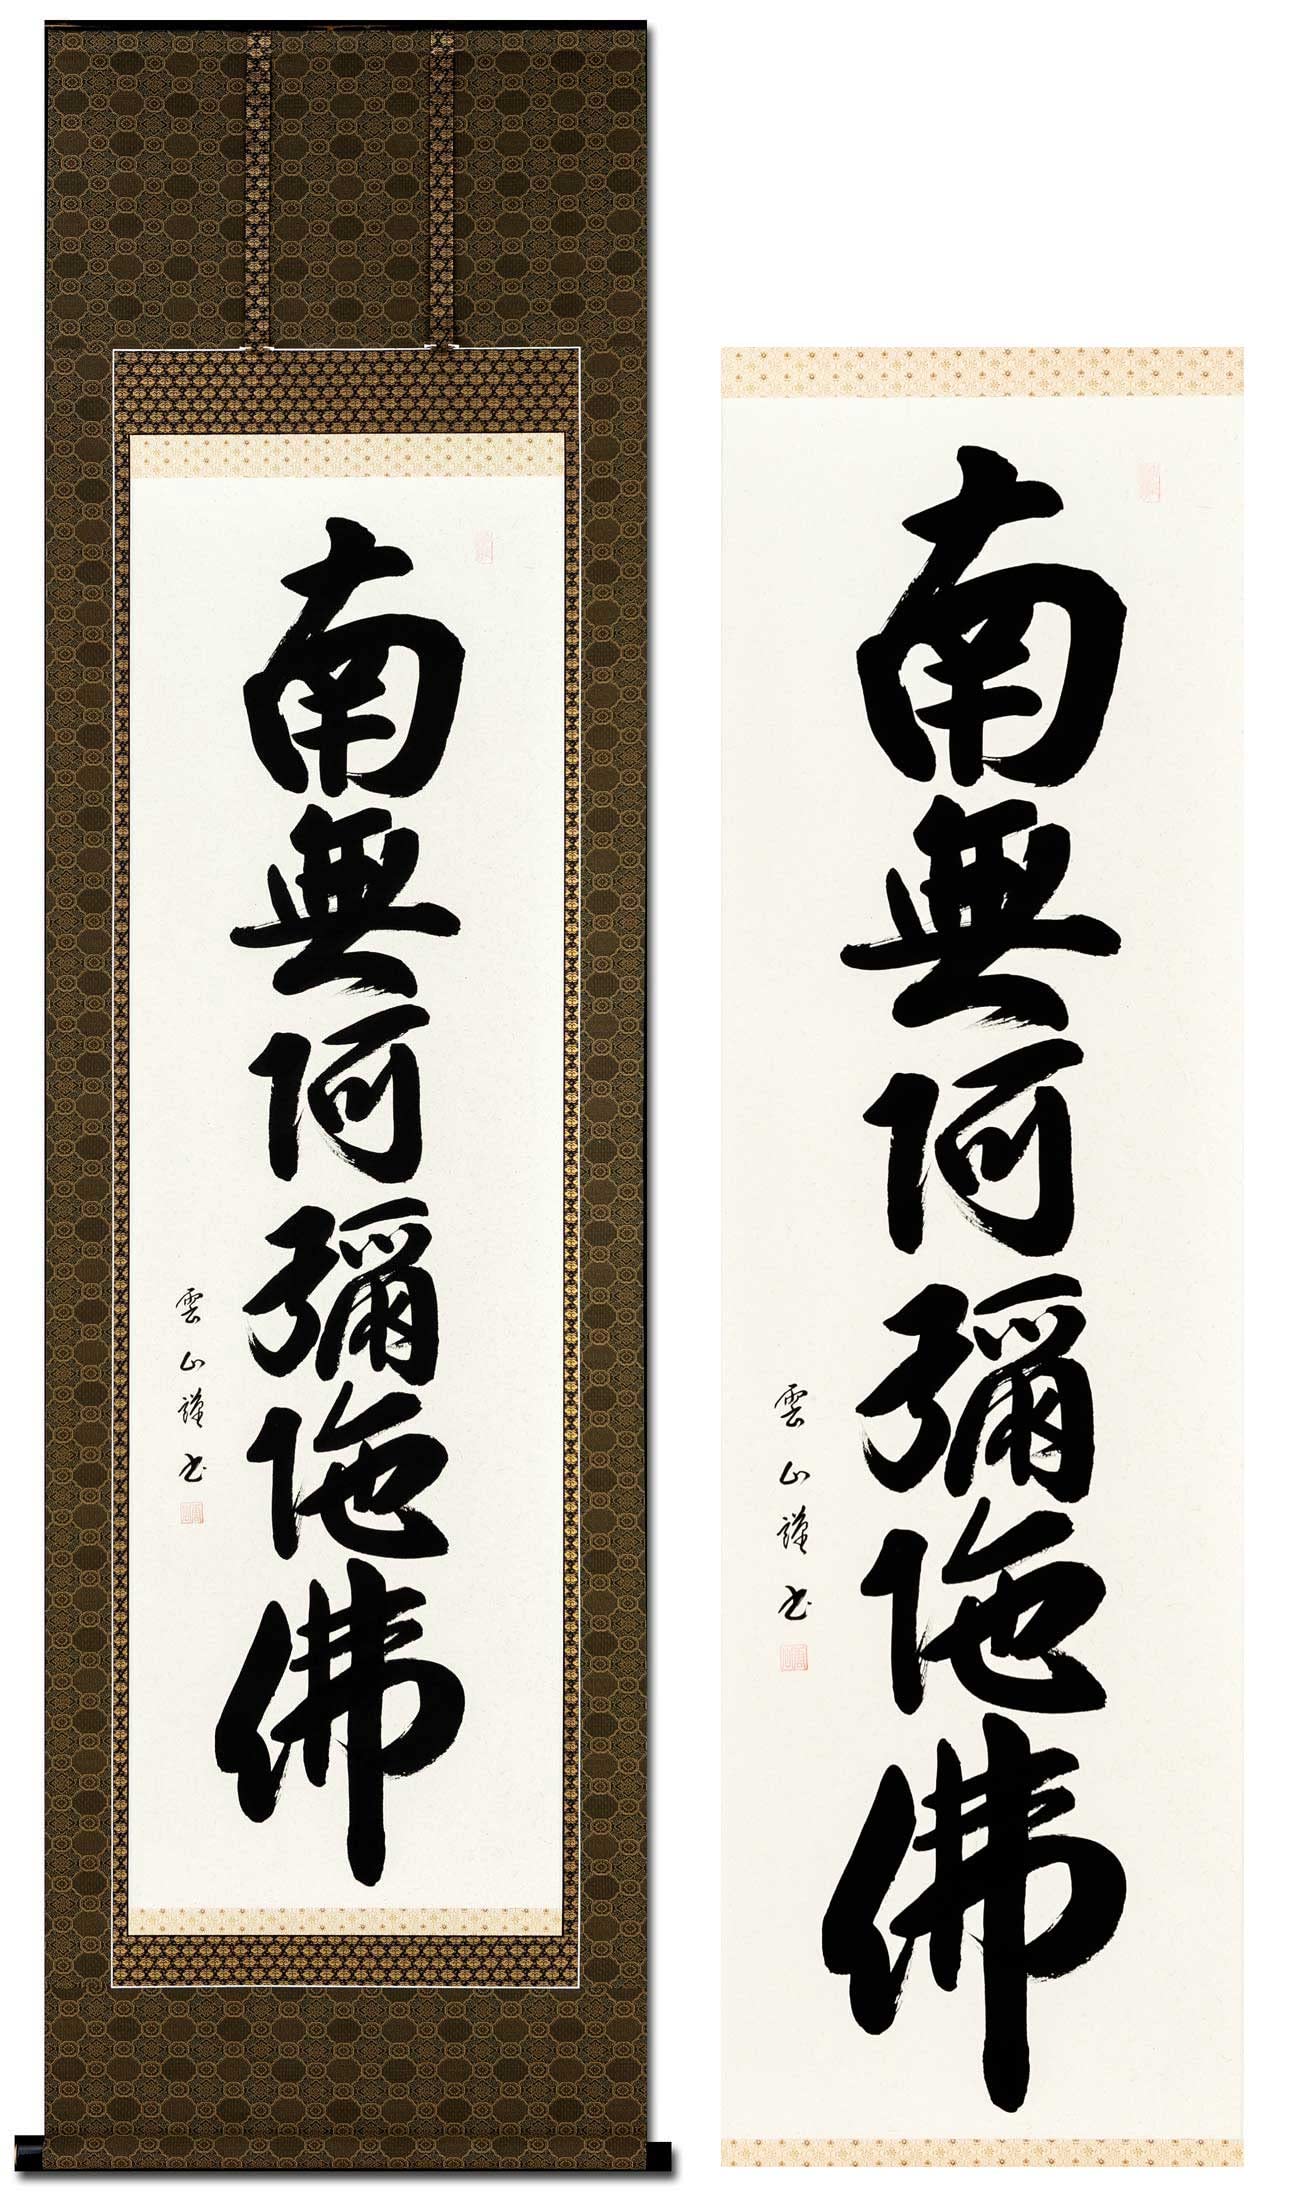 南無阿彌陀佛
雲山謹書
南無阿彌陀佛
雲山謹書